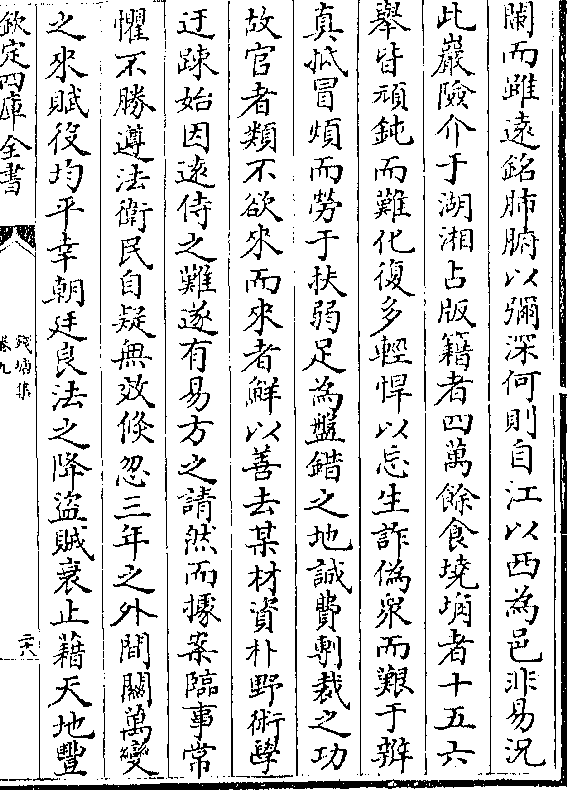 閡而雖遠銘肺腑以彌深何則自江以西為邑非易況
此巖險介于湖湘占版籍者四萬餘食墝埆者十五六
舉皆頑鈍而難化復多輕悍以忘生詐偽衆而艱于辨
真抵冒煩而勞于扶弱足為盤錯之地誠費剸裁之功
故官者類不欲來而來者鮮以善去某材資朴野術學
迂踈始因逺侍之難遂有易方之請然而據案臨事常
懼不勝遵法衛民自疑無效倐忽三年之外間關萬變
之來賦役均平幸朝廷良法之降盜賊衰止藉天地豐
欽定四庫全書
錢塘集
卷九
二六